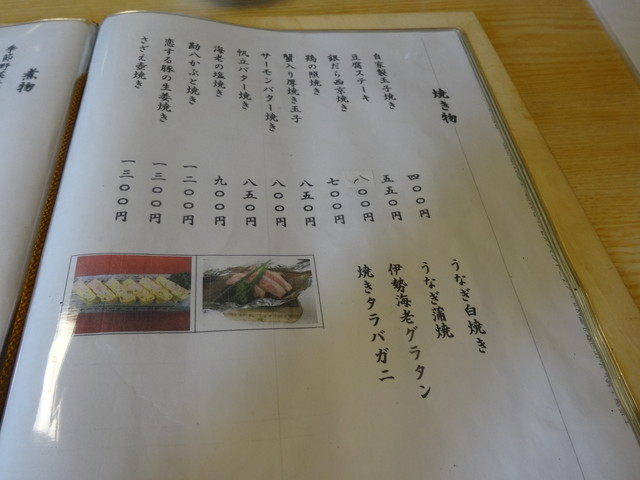 焼き物
自家製玉子焼き 四〇〇円
豆腐ステーキ 五五〇円
銀だら西京焼き 八〇〇円
鶏の照焼き 七〇〇円
蟹入り厚焼き玉子 八五〇円
サーモンバター焼き 八〇〇円
帆立バター焼き 八五〇円
海老の塩焼き 九〇〇円
勘八かぶと焼き 一二〇〇円
恋する豚の生姜焼き 一三〇〇円
さざえ壺焼き 一三〇〇円
うなぎ白焼き
うなぎ蒲焼
伊勢海老グラタン
焼きタラバガニ
煮物
季節野